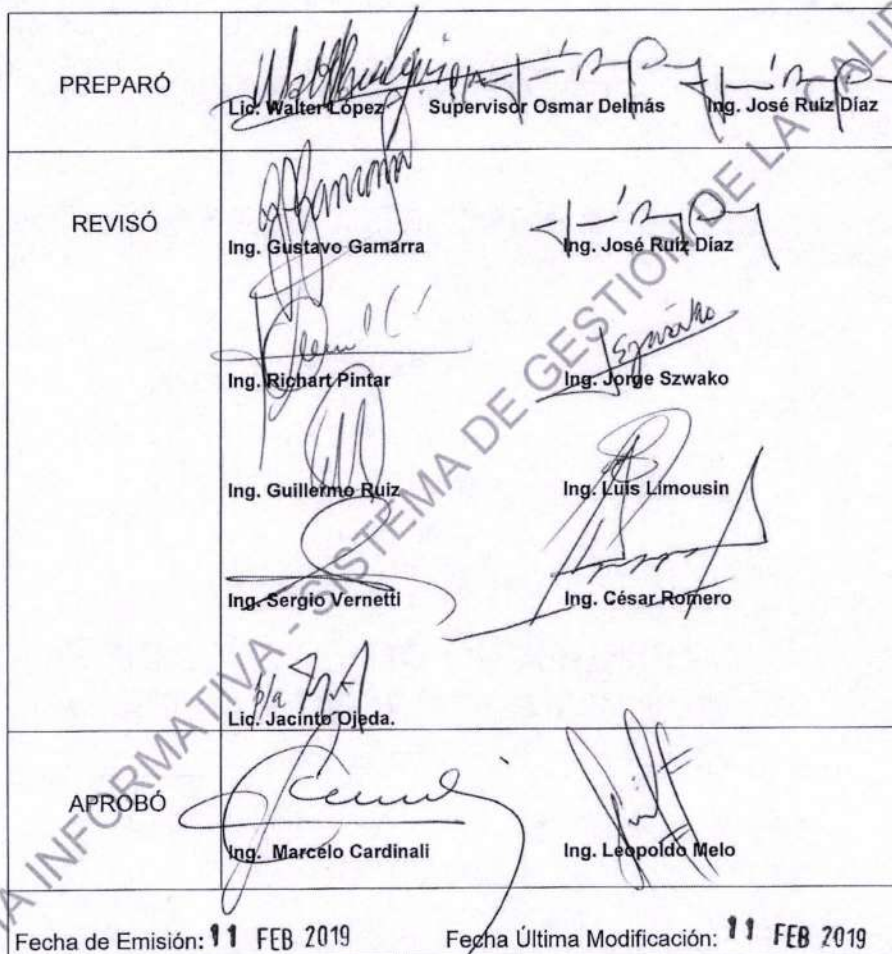 PREPARÓ
Lic. Walter López Supervisor Osmar Delmás Ing. José Ruíz Díaz
REVISÓ
Ing. Gustavo Gamarra Ing. José Ruíz Díaz
Ing. Richart Pintar Ing. Jorge Szwako
Ing. Guillermo Ruiz Ing. Luis Limousin
Ing. Sergio Vernetti Ing. César Romero
p/a
Lic. Jacinto Ojeda.
APROBÓ
Ing. Marcelo Cardinali Ing. Leopoldo Melo
Fecha de Emisión: 11 FEB 2019 Fecha Última Modificación: 11 FEB 2019
INFORMATIVA - SISTEMA DE GESTION DE LA